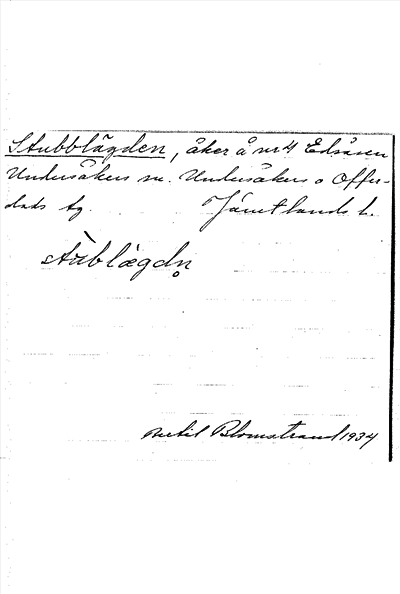 Stubblägden, åker å nr 4 Edsåsen
Undersåkers sn. Undersåkers o Offer-
dals tg. Jämtlands l.
stùblägdn̥
Bertil Blomstrand 1934